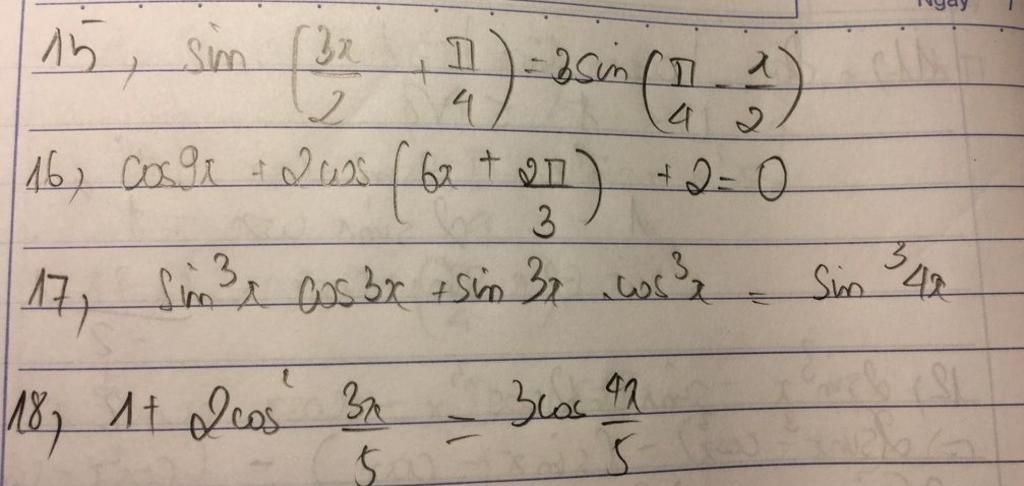 Ngày
15, sin (3x/2 + π/4) = 3sin (π/4 - x/2)
16, cos9x + 2cos (6x + 2π/3) + 2 = 0
17, sin³x cos3x + sin 3x . cos³x = sin³4x
18, 1 + 2cos² 3x/5 = 3cos 4x/5